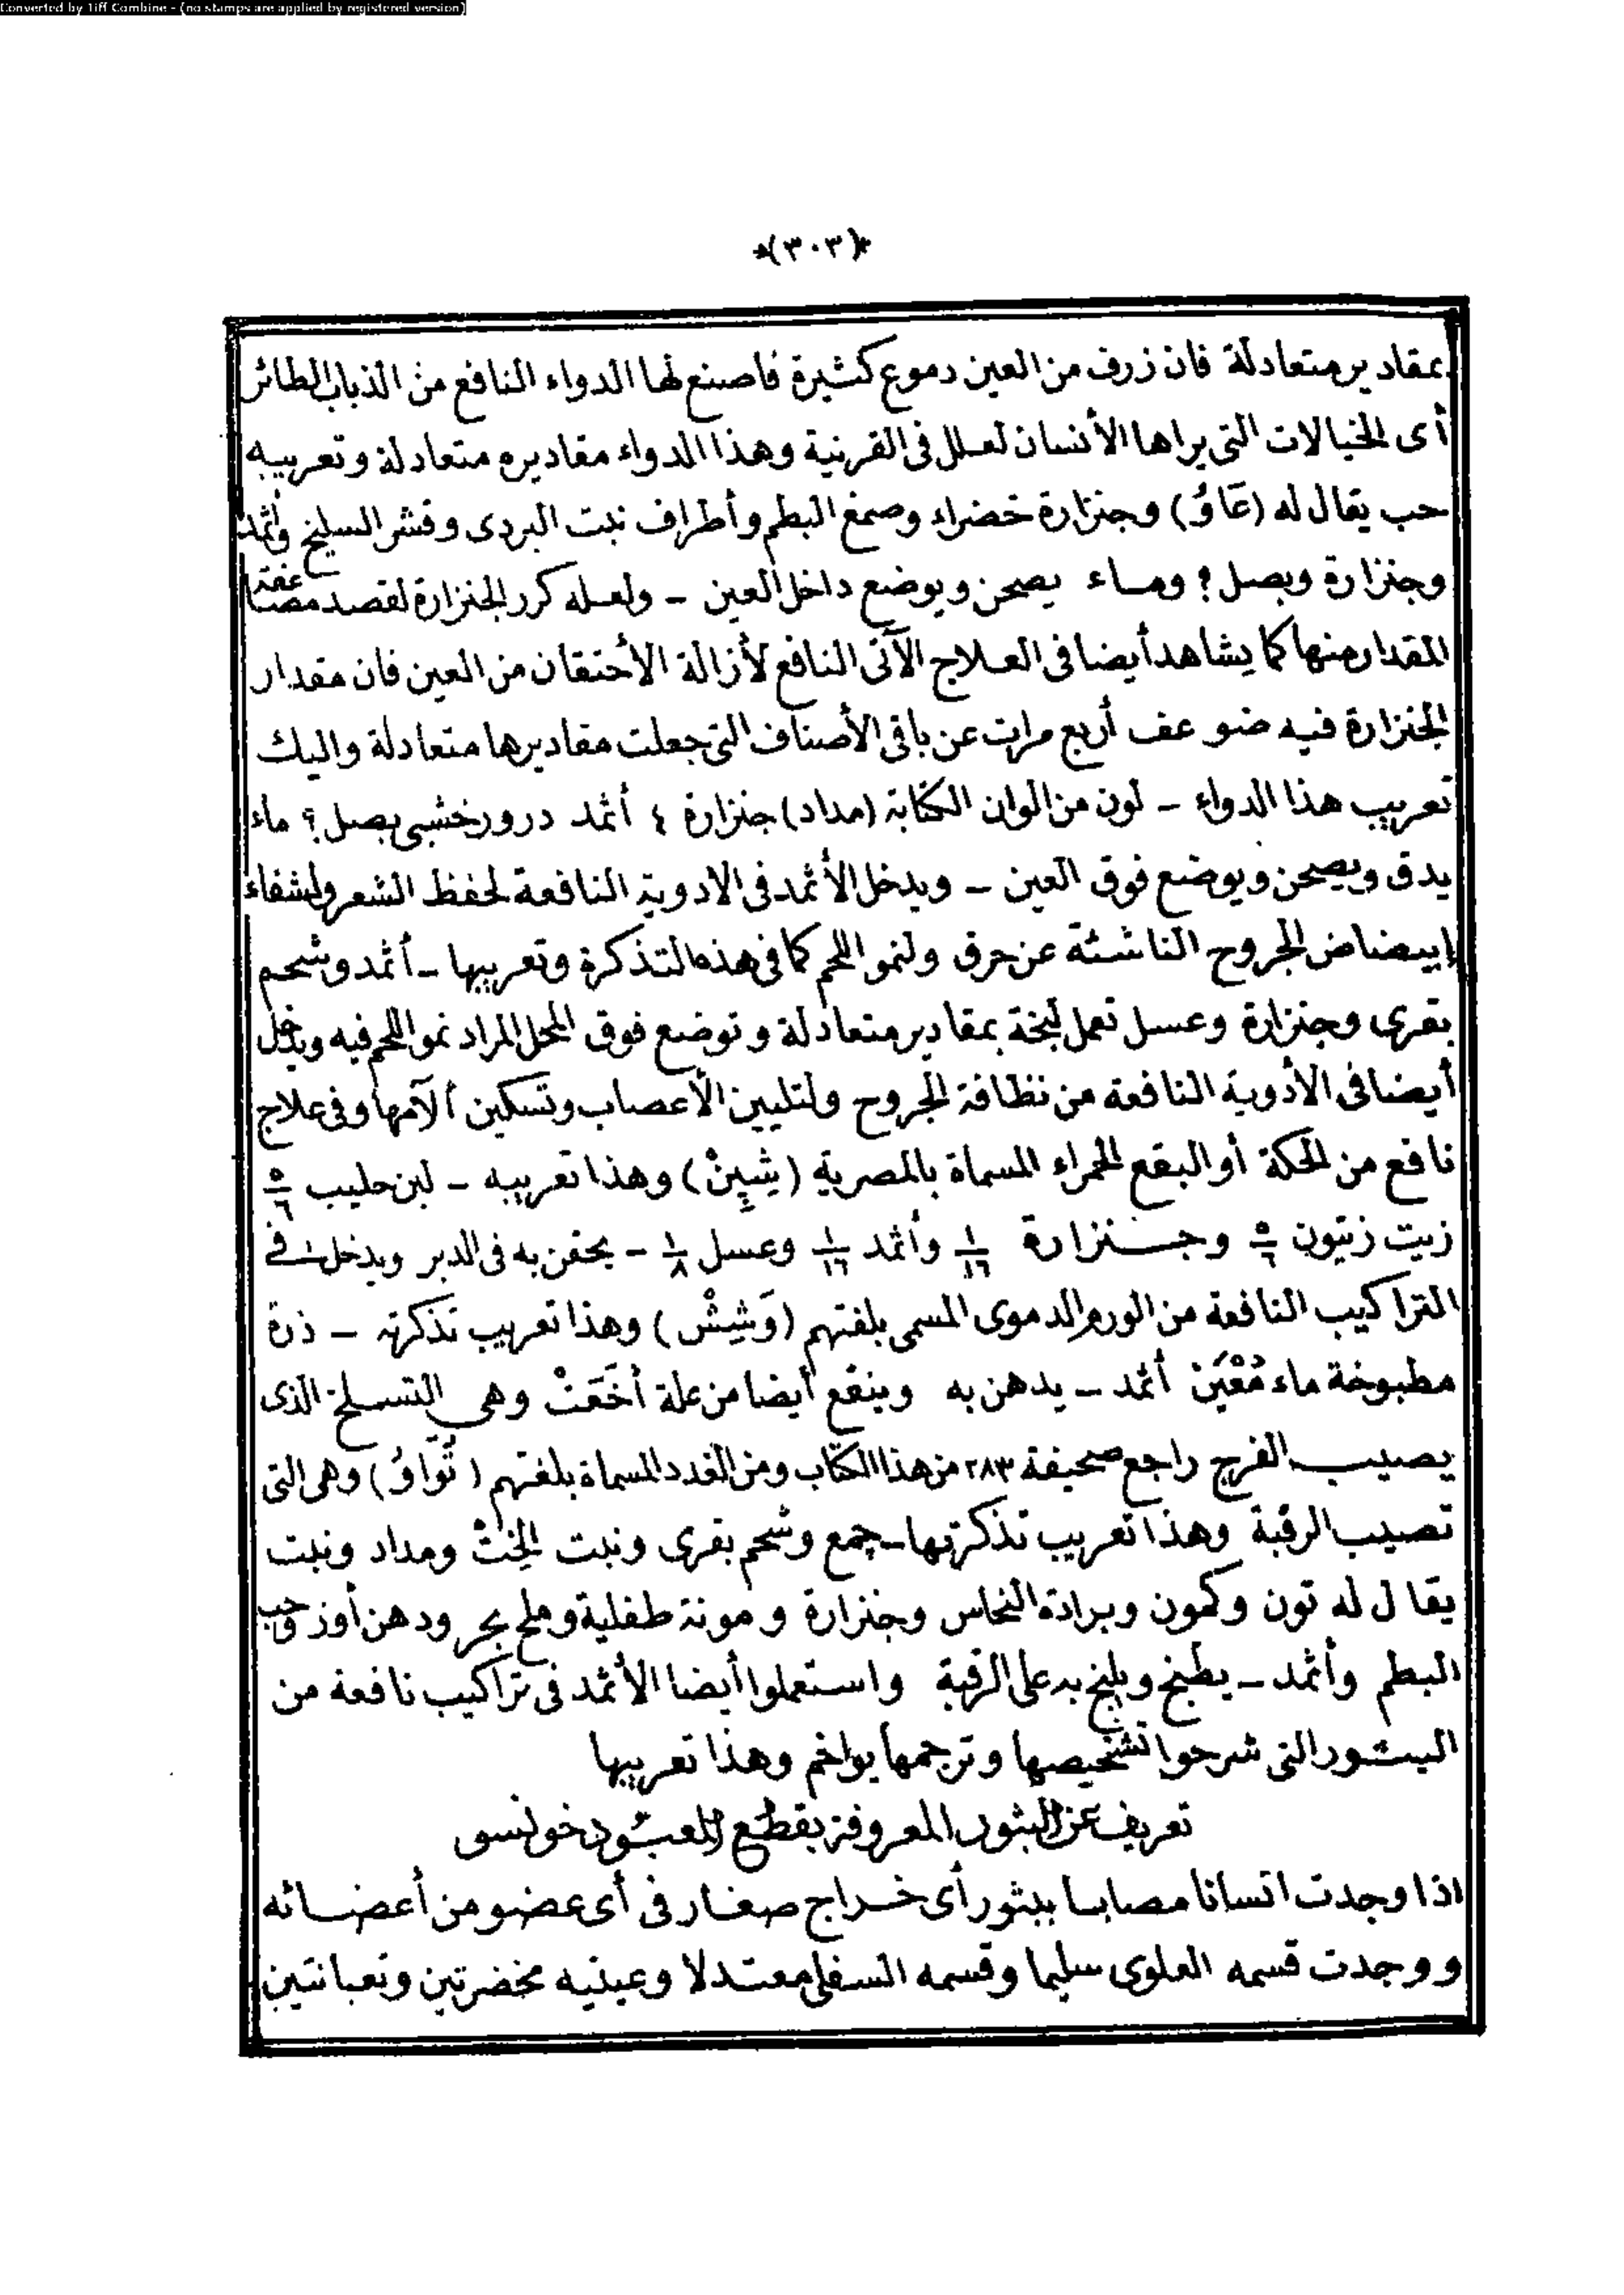 Converted by Tiff Combine - (no stamps are applied by registered version)
*(٣٠٣)*
بمقادير متعادلة فان زرف من العين دموع كثيرة فاصنع لها الدواء النافع من الذباب الطائر
أى الخيالات التى يراها الأنسان لعلل فى القرنية وهذا الدواء مقاديره متعادلة وتعريبه
حب يقال له (عَاوُ) وجنزارة خضراء وصمغ البطم وأطراف نبت البردى وقشر السليخ وأثمد
وجنزارة وبصل ؟ وماء يصحن ويوضع داخل العين – ولعله كرر الجنزارة لقصد مضاعفة
المقدار منها كما يشاهد أيضا فى العلاج الآتى النافع لأزالة الأحتقان من العين فان مقدار
الجنزارة فيه ضوعف أربع مرات عن باقى الأصناف التى جعلت مقاديرها متعادلة واليك
تعريب هذا الدواء – لون من الوان الكتابة (مداد) جنزارة ٤ أثمد درور خشبى بصل ؟ ماء
يدق ويصحن ويوضع فوق العين – ويدخل الأثمد فى الادوية النافعة لحفظ الشعر ولشفاء
إبيضاض الجروح الناشئة عن حرق ولنمو اللحم كما فى هذه التذكرة وتعريبها – أثمد وشحم
بقرى وجنزارة وعسل تعمل لبخة بمقادير متعادلة وتوضع فوق المحل المراد نمو اللحم فيه ويدخل
أيضا فى الأدوية النافعة من نظافة الجروح ولتليين الأعصاب وتسكين ألآمها وفى علاج
نافع من الحكة أو البقع الحمراء المسماة بالمصرية (شِپِنْ) وهذا تعريبه – لبن حليب ٥/٦
زيت زيتون ٥/٦ وجنزارة ١/١٦ وأثمد ١/١٦ وعسل ١/٨ – يحقن به فى الدبر ويدخل فى
التراكيب النافعة من الورم الدموى المسمى بلغتهم (وَشِيشْ) وهذا تعريب تذكرته – ذرة
مطبوخة ماء مُعْيَنْ أثمد – يدهن به وينفع أيضا من علة أخَعَتْ وهى التسلخ الذى
يصيب الفرج راجع صحيفة ٢٨٣ من هذا الكتاب ومن الغدد المسماة بلغتهم (تَوَاوُ) وهى التى
تصيب الرقبة وهذا تعريب تذكرتها – جمع وشحم بقرى ونبت الخِتْ ومداد ونبت
يقال له تون وكمون وبرادة النحاس وجنزارة ومونة طفلية وملح بحر ودهن أوز وحب
البطم وأثمد – يطبخ ويلبخ به على الرقبة واستعملوا أيضا الأثمد فى تراكيب نافعة من
البثور التى شرحوا تشخيصها وترجمها يواخم وهذا تعريبها
تعريف عن البثور المعروفة بقطع المعبود خونسو
اذا وجدت انسانا مصابا ببثور أى خراج صغار فى أى عضو من أعضائه
ووجدت قسمه العلوى سليما وقسمه السفلى معتدلا وعينيه مخضرتين وتعبانتين